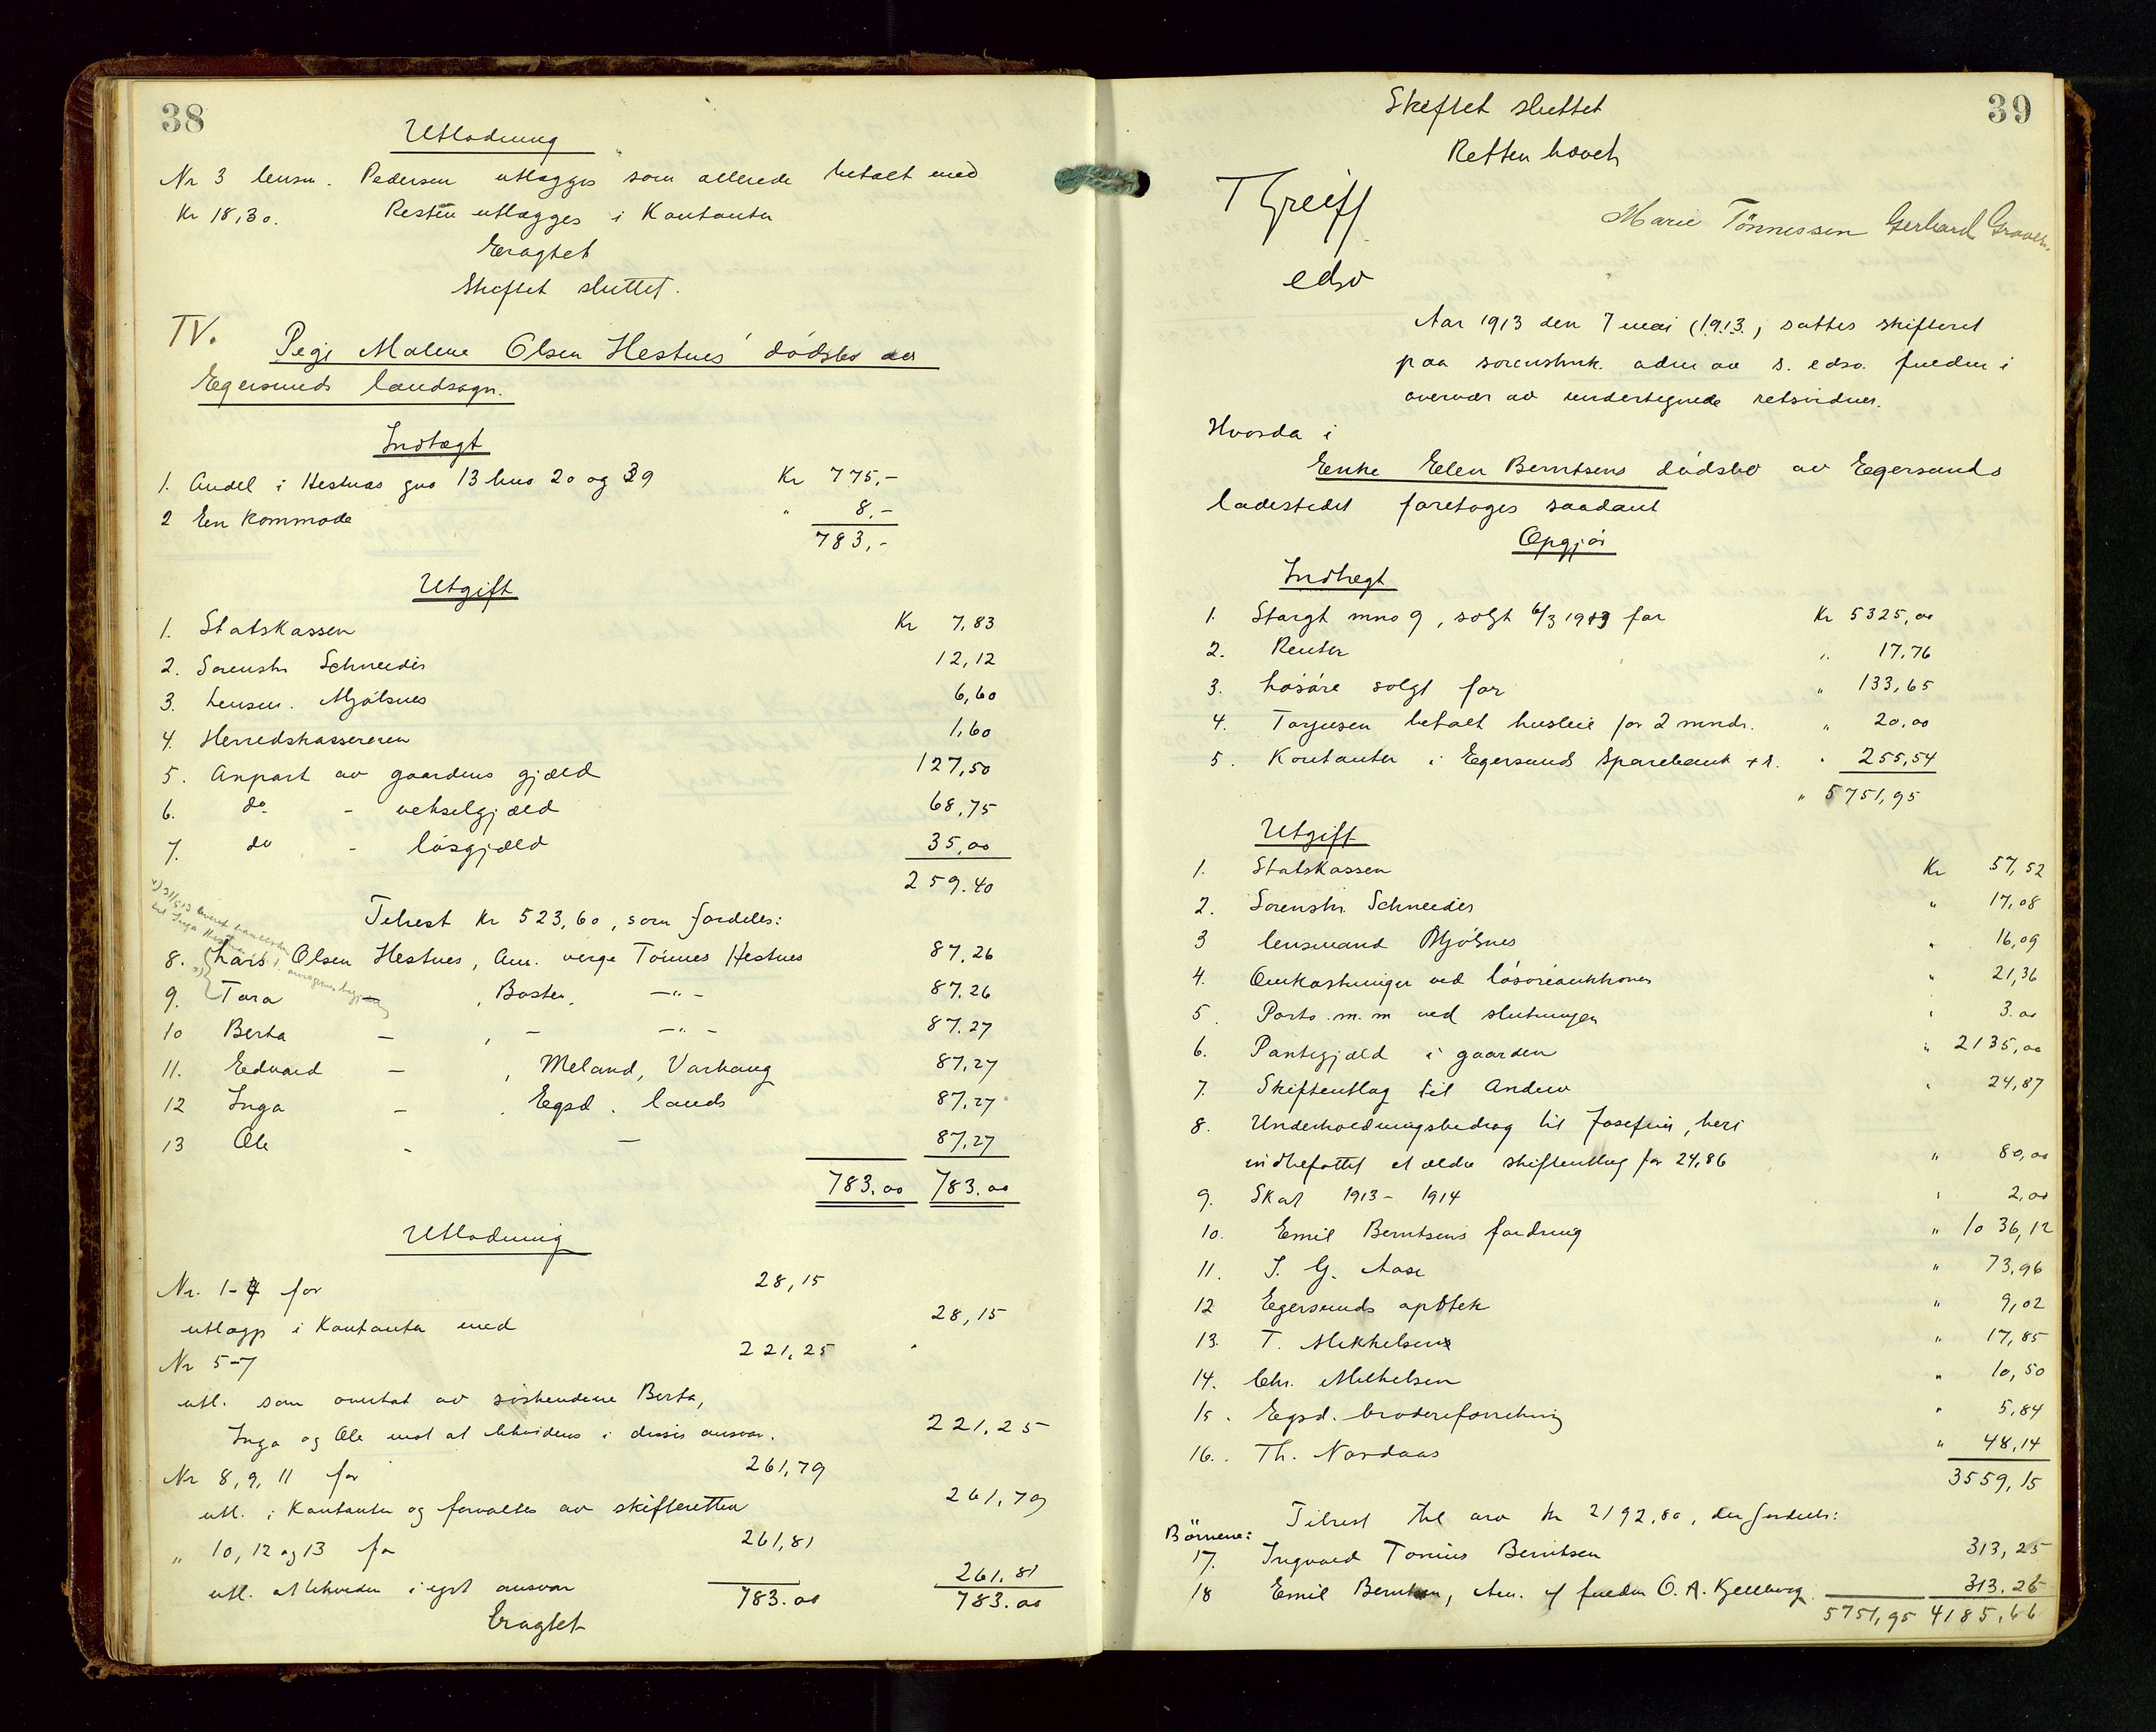 38
Utlodning
Nr 3 lensm. Pedersen utlægges som allerede betalt med
Kr 18,30. Resten utlægges i Kontanter
Eragtet
Skiftet sluttet.
IV. Pege Malene Olsen Hestnes' dödsbo av
Egersunds landsogn.
Indtægt
1. Andel i Hestnes gno 13 bno 20 og 39 Kr 775,-
2 En Kommode " 8,-
783,-
Utgift
1. Statskassen Kr 7,83
2. Sorenskr Schneider 12,12
3. Lensm. Mjölsnes 6,60
4. Herredskassereren 1,60
5. Anpart av gaardens gjæld 127,50
6. do - vekselgjæld 68,75
7. do - lösgjæld 35,00
259.40
Tilrest Kr 523,60, som fordeles:
8. Lars Olsen Hestnes, Am. verge Tönnes Hestnes 87,26
9. Tara - , Boston, -"- 87,26
10 Berta - , - -"- 87.27
11. Edvard - , Meland, Varhaug 87,27
12 Inga - . Egsd. lands 87,27
13 Ole - - 87,27
783.00 783.00
Utlodning
Nr. 1-4 for 28,15
utlægg i Kontanter med 28,15
Nr 5-7 221,25
utl. som overtat av söskendene Berta,
Inga og Ole mot at likvidens i deres ansvar. 221,25
Nr 8, 9, 11 for 261,79
utl. i Kontanter og forvaltes av skifteretten 261,79
" 10, 12 og 13 for 261,81
utl. at likvidere i eget ansvar 261,81
783.00 783.00
Eragtet
39
Skiftet sluttet
Retten hævet
T Greiff
edsv
Marie Tönnessen Gerhard Graven.
Aar 1913 den 7 mai (1913), sattes skifteret
paa sorenskrk. adm av s. edsv. fuldm i
overvær av undertegnede retsvidner.
Hvorda i
Enke Elen Berntsens dödsbo av Egersunds
ladestedet foretoges saadant
Opgjör
Indtægt
1. Stargt mno 9, solgt 6/3 1913 for Kr 5325,00
2. Renter " 17,76
3. Lösöre solgt for " 133,65
4. Torjusen betalt husleie for 2 mndr. " 20,00
5. Kontanter i Egersunds Sparebank + r. " 255,54
" 5751,95
Utgift
1. Statskassen Kr 57,52
2. Sorenskr. Schneider " 17,08
3 lensmand Mjölsnes " 16,09
4. Omkostninger ved lösöreauktionen " 21,36
5. Porto m.m ved slutningen " 3.00
6. Pantegjæld i gaarden " 2135,00
7. Skifteutlæg til Andrew " 24,87
8. Underholdningsbidrag til Josefine, heri
indbefattet et ældre skifteutlæg for 24,86 " 80,00
9. Skat 1913 - 1914 " 2,00
10. Emil Berntsens fordring " 1036,12
11. J. G. Aase " 73,96
12 Egersunds apotek " 9,02
13. T. Mikkelsen " 17,85
14. Chr. Mikkelsen " 10,50
15. Egsd. broderiforretning " 5,84
16. Th. Nordaas " 48,14
3559,15
Tilrest til arv kr 2192,80, der fordeles:
Börnene:
17. Ingvald Tonius Berntsen 313,25
18 Emil Berntsen, Am. v/ fuldm O. A. Kjellberg 313.26
5751,95 4185,66